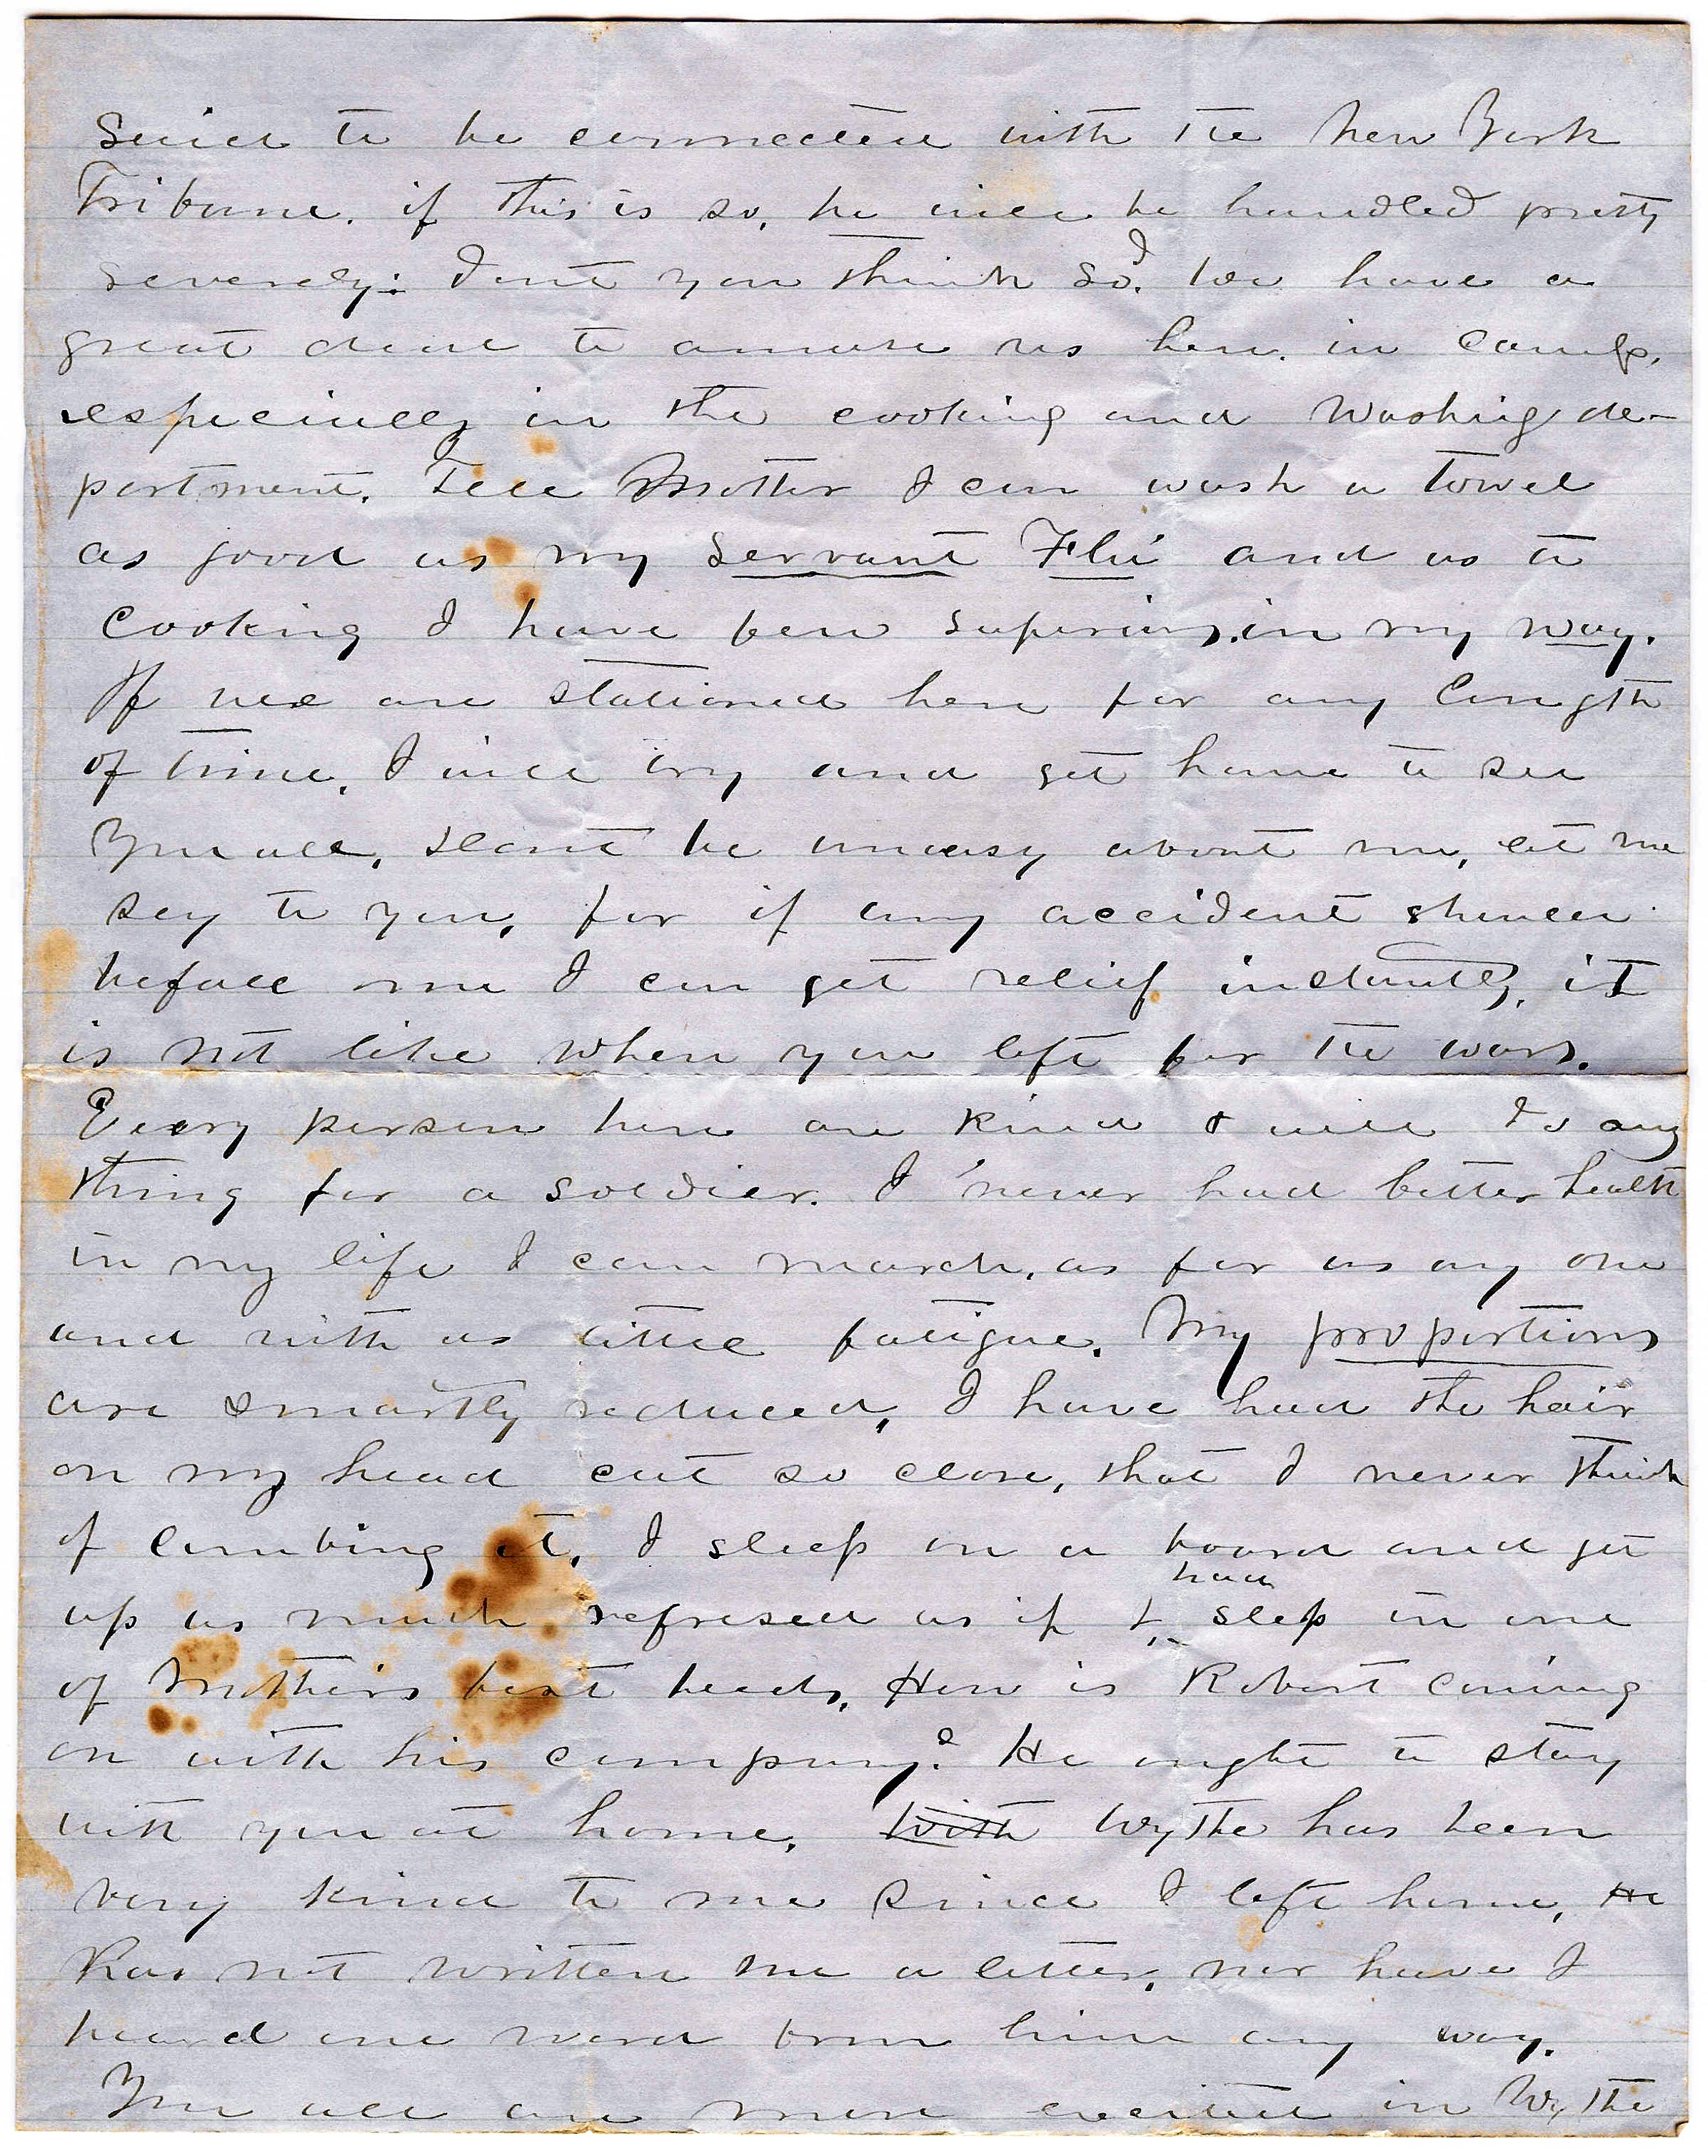 Said to be connected with the New York
Tribune. if this is so, he will be handled pretty
severely: dont you think so? We have a
great deal to amuse us here. in camp,
especially in the cooking and Washig de-
partment. Tell Mother I can wash a towel
as good as my servant Flu and as to
Cooking I have ben superior, in my way.
If we are stationed here for any length
of time, I will try and get home to see
You all, dont be uneasy about me, let me
say to you, for if any accident should
befall me I can get relief instantly, it
is not like when you left for the wars.
Every person here are kind & will do any
thing for a soldier. I never had better health
in my life I can march, as far as any one
and with as little fatigue. My proportions
are smartly reduced, I have had the hair
on my head cut so close, that I never think
of combing it, I sleep on a board and get
up as much refresed as if I, had slep in one
of Mothers best beds, How is Robert coming
on with his company? He ought to stay
with you at home, With Wythe has been
very kind to me since I left home, He
has not written me a letter, nor have I
heard one word from him any way.
You all are more excited in Wythe